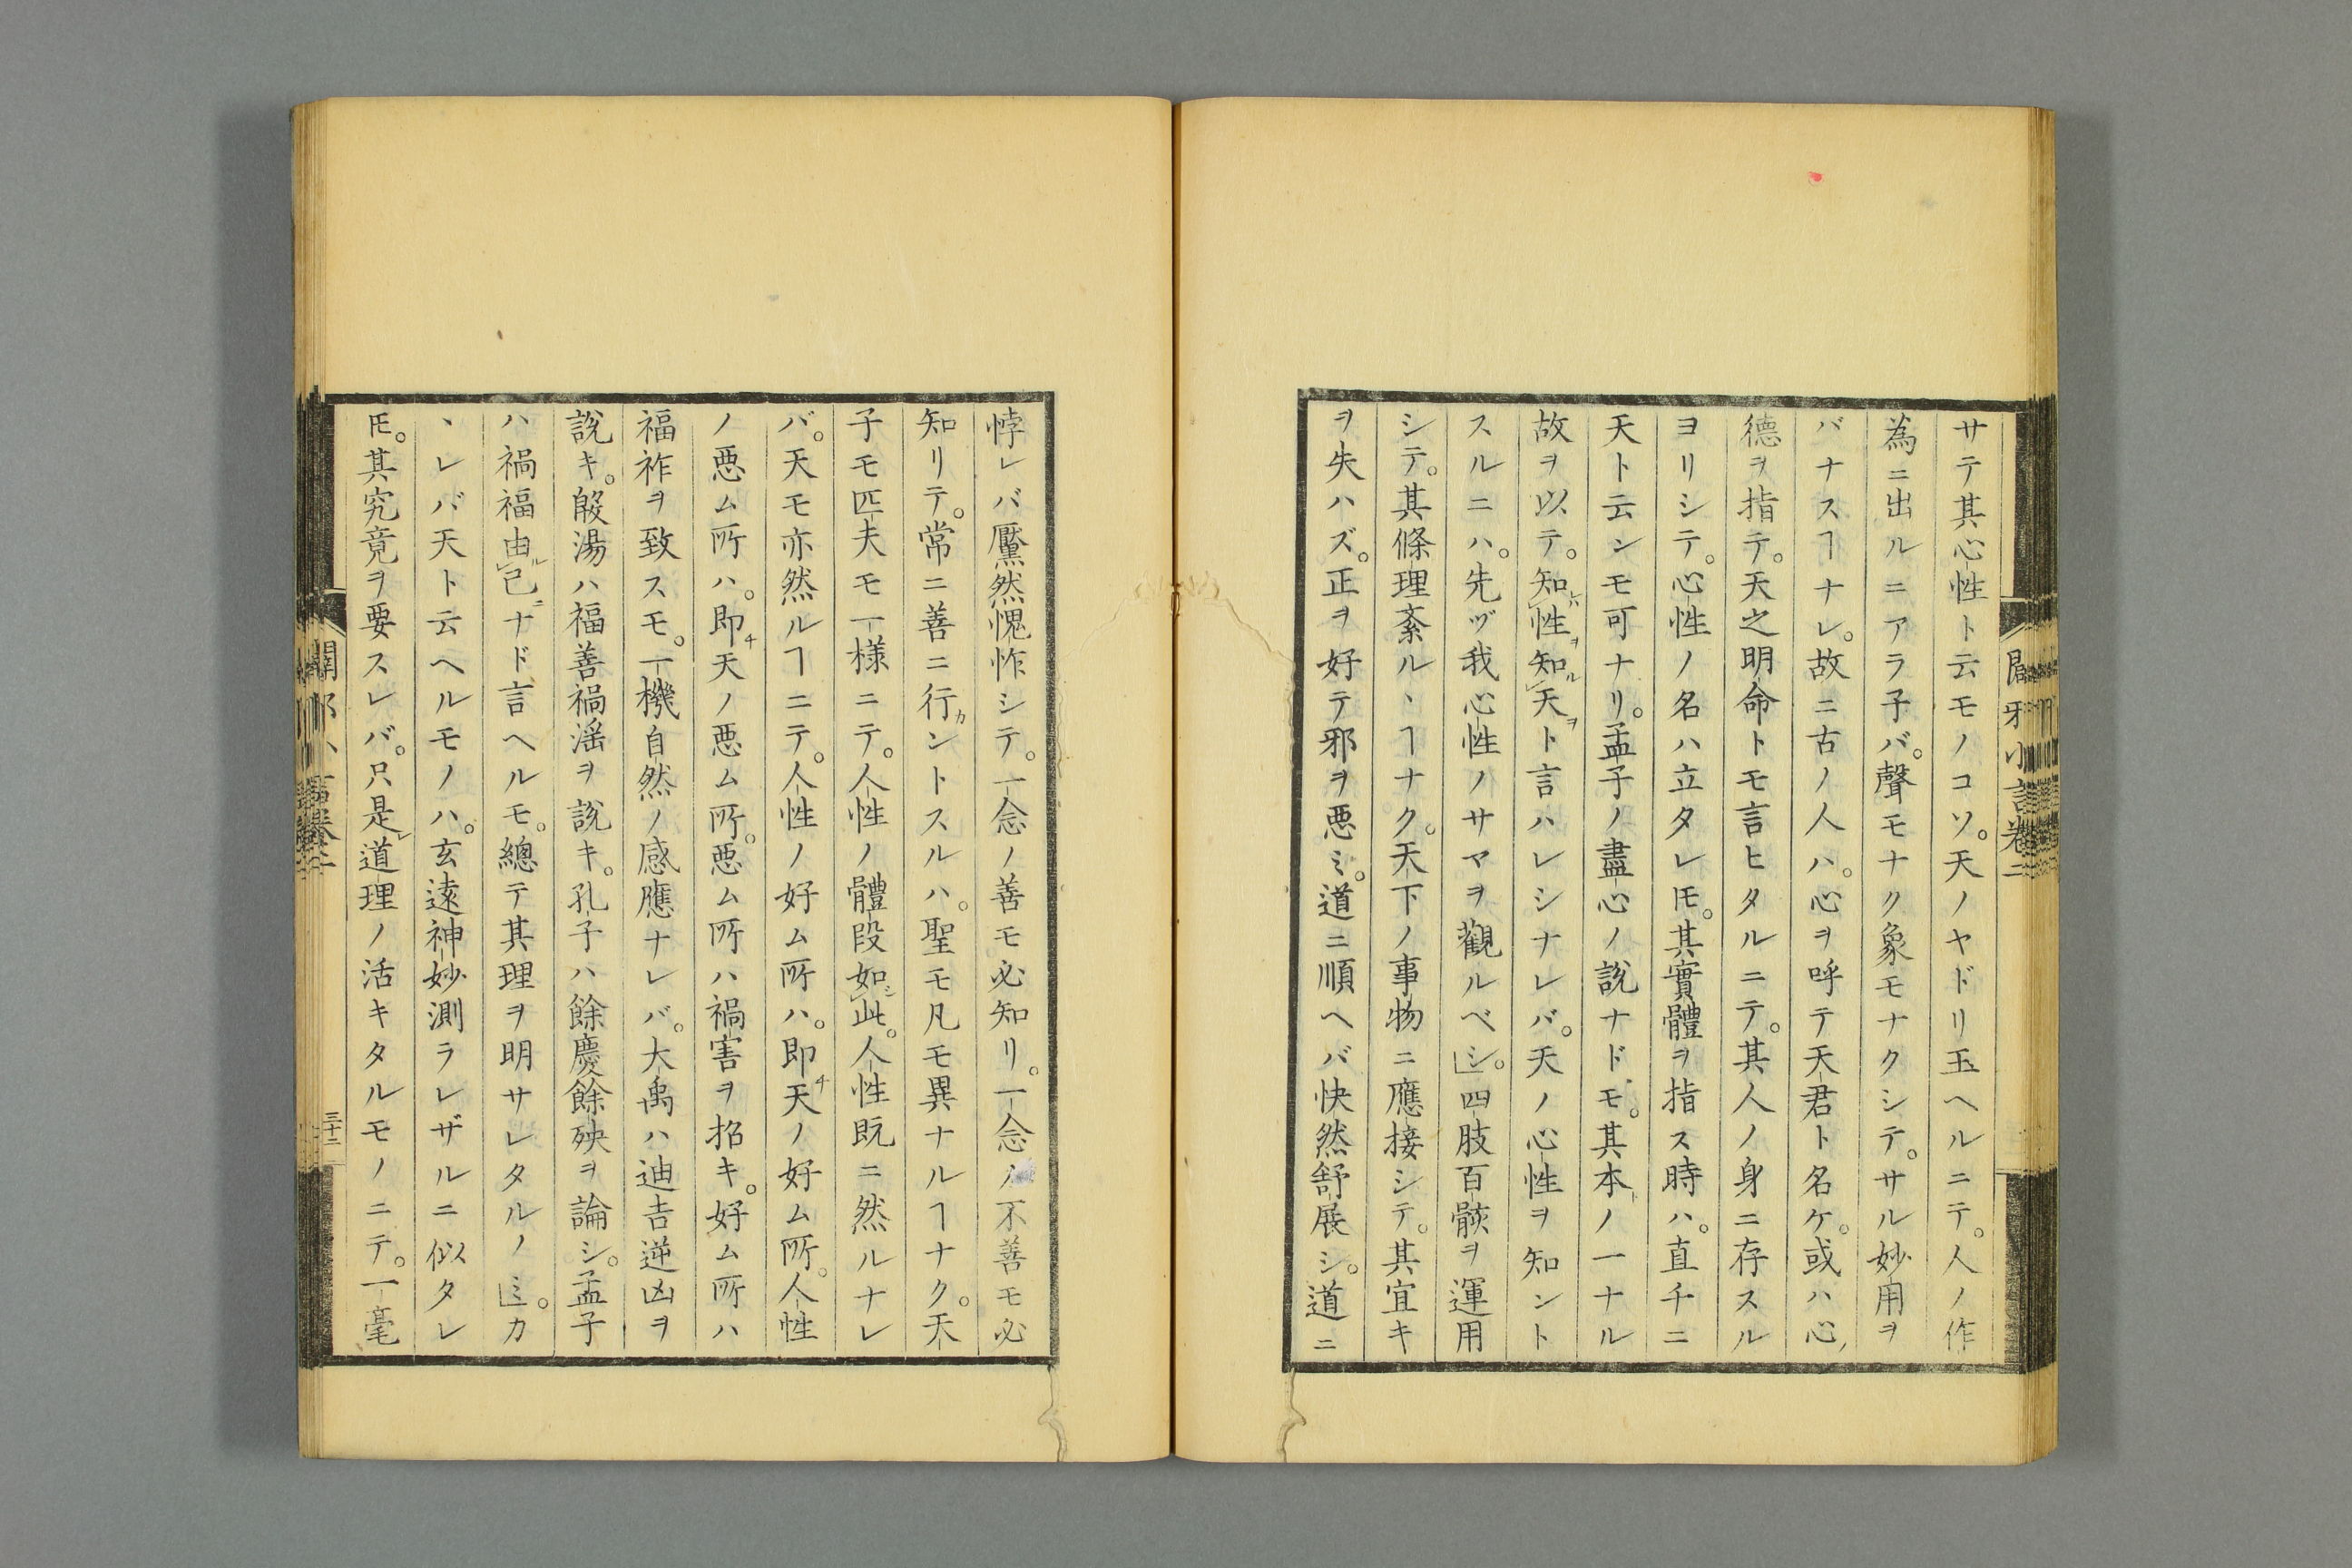 サテ其心性ト云モノコソ。天ノヤドリ玉ヘルニテ。人ノ作
為ニ出ルニアラ子バ。聲モナク象モナクシテ。サル妙用ヲ
バナスヿナレ。故ニ古ノ人ハ。心ヲ呼テ天君ト名ケ。或ハ心ノ
德ヲ指テ。天之明命トモ言ヒタルニテ。其人ノ身ニ存スル
ヨリシテ。心性ノ名ハ立タレ𪜈。其實體ヲ指ス時ハ。直チニ
天ト云ンモ可ナリ。孟子ノ盡心ノ說ナドモ。其本ノ一ナル
故ヲ以テ。知レハ性ヲ知ル天ヲト言ハレシナレバ。天ノ心性ヲ知ント
スルニハ。先ヅ我心性ノサマヲ觀ルベシ。四肢百骸ヲ運用
シテ。其條理紊ルヽヿナク。天下ノ事物ニ應接シテ。其宜キ
ヲ失ハズ。正ヲ好テ邪ヲ悪ミ。道ニ順ヘバ快然舒展シ。道ニ
闢邪小言卷二
悖レバ黶然愧怍シテ。一念ノ善モ必知リ。一念ノ不善モ必
知リテ。常ニ善ニ行カントスルハ。聖モ凡モ異ナルヿナク。天
子モ匹夫モ一樣ニテ。人性ノ體段如シ此。人性既ニ然ルナレ
バ。天モ亦然ルヿニテ。人性ノ好ム所ハ。即チ天ノ好ム所。人性
ノ悪ム所ハ。即チ天ノ悪ム所。悪ム所ハ禍害ヲ招キ。好ム所ハ
福祚ヲ致スモ。一機自然ノ感應ナレバ。大禹ハ迪吉逆凶ヲ
說キ。殷湯ハ福善禍淫ヲ說キ。孔子ハ餘慶餘殃ヲ論シ。孟子
ハ禍福由ル己ニナド言ヘルモ。總テ其理ヲ明サレタルノミ。カ
ヽレバ天ト云ヘルモノハ。玄遠神妙測ラレザルニ似タレ
𪜈。其究竟ヲ要スレバ。只是レ道理ノ活キタルモノニテ。一毫
闢邪小言卷二
三十二